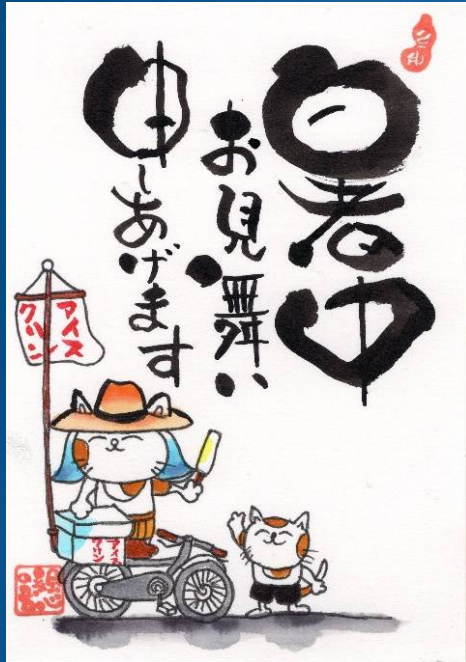 暑中
お見舞い
申しあげます
アイス
クリン
アイス
クリン